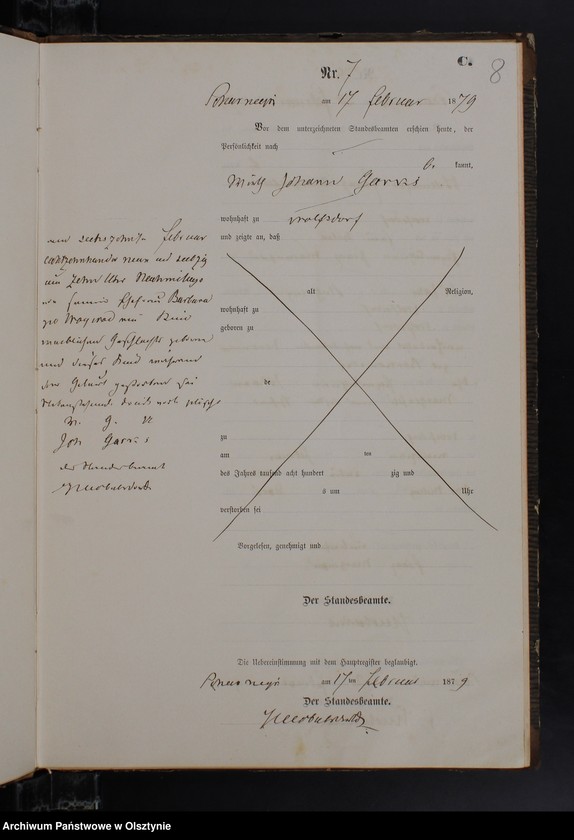 C.
8
Nr. 7
am 17 Februar 1879
Vor dem unterzeichneten Standesbeamten erschien heute, der
Persönlichkeit nach
kannt,
Johann
wohnhaft zu Wolfsdorf
und zeigte an, daß
am sechszehnten Februar
achtzehnhundert neun und siebzig
um zehn Uhr Nachmittags
von seiner Ehefrau Barbara
geb ein Kind
maennlichen Geschlechts geboren
und dieses Kind waehrend
der Geburt gestorben sei
Vorstehende
v. g. u.
Joh
der Standesbeamte
alt Religion,
wohnhaft zu
geboren zu
de
zu
am ten
des Jahres tausend acht hundert zig und
s um Uhr
verstorben sei
Vorgelesen, genehmigt und
Der Standesbeamte.
Die Uebereinstimmung mit dem Hauptregister beglaubigt.
am 17 ten Februar 1879
Der Standesbeamte.
Archiwum Państwowe w Olsztynie